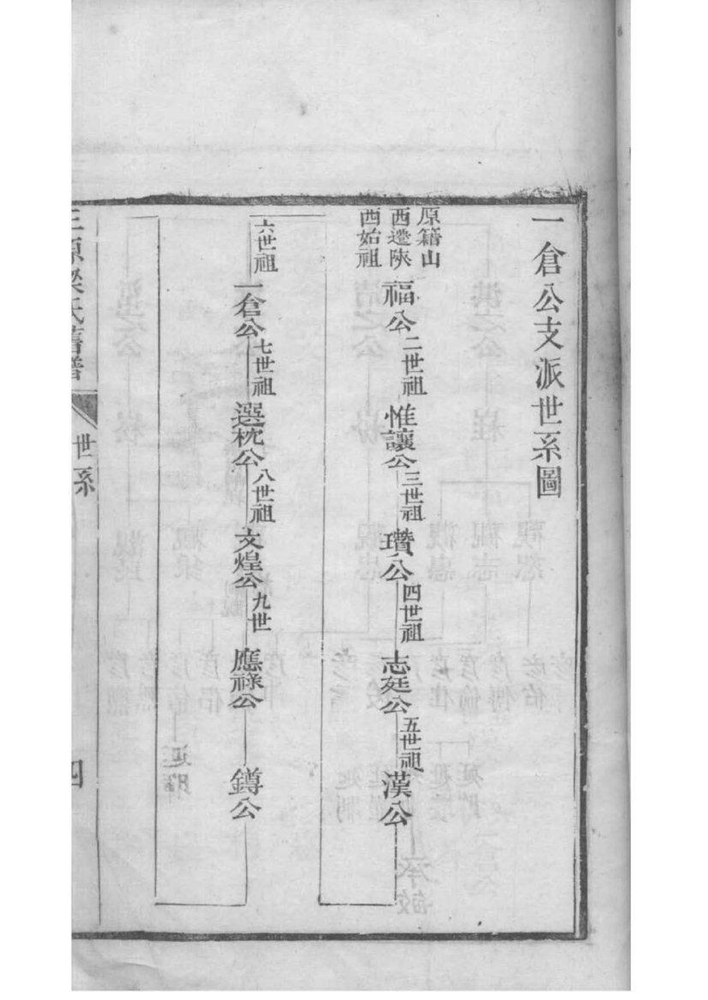 一倉公支派世系圖
原籍山
西遷陝
西始祖
福公
二世祖
惟讓公
三世祖
瓚公
四世祖
志廷公
五世祖
漢公
六世祖
一倉公
七世祖
選枕公
八世祖
文煌公
九世
應祿公
鐏公
三原梁氏舊譜
世系
四